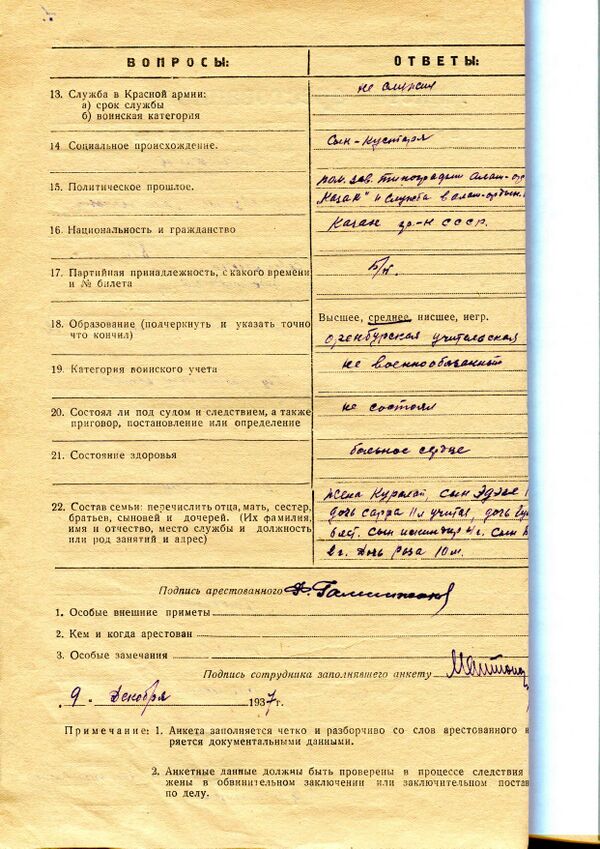 ВОПРОСЫ: ОТВЕТЫ:
13. Служба в Красной армии: не служил
а) срок службы
б) воинская категория
14 Социальное происхождение. Сын-Кустаря
15. Политическое прошлое. пом. зав. типографии алаш-ор
"Казак" и служба в алаш-ордын.
16. Национальность и гражданство Казак гр-н СССР.
17. Партийная принадлежность, с какого времени Б/п.
и № билета
18. Образование (подчеркнуть и указать точно Высшее, среднее, нисшее, негр.
что кончил) оренбурская учительская
19. Категория воинского учета не военнообязанный
20. Состоял ли под судом и следствием, а также не состоял
приговор, постановление или определение
21. Состояние здоровья больное сердце
22. Состав семьи: перечислить отца, мать, сестер, жена сын
братьев, сыновей и дочерей. (Их фамилия, дочь сарра учител, дочь
имя и отчество, место службы и должность сын 4 г. сын
или род занятий и адрес) 2 г. Дочь Роза 10 м.
Подпись арестованного
1. Особые внешние приметы
2. Кем и когда арестован
3. Особые замечания
Подпись сотрудника заполнявшего анкету
9 - Декабря 1937 г.
Примечание: 1. Анкета заполняется четко и разборчиво со слов арестованного и
ряется документальными данными.
2. Анкетные данные должны быть проверены в процессе следствия
жены в обвинительном заключении или заключительном постан
по делу.